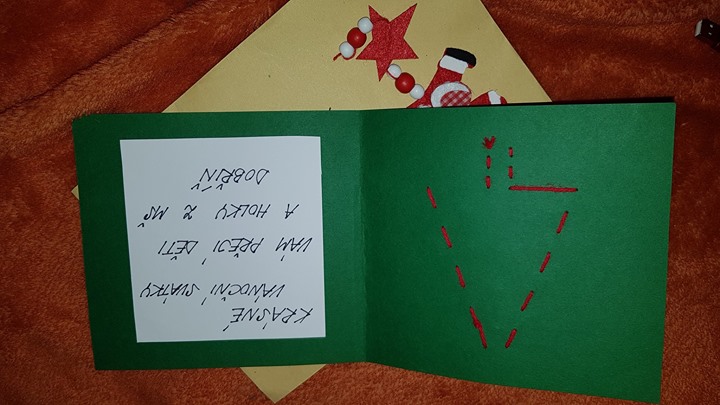 KRÁSNÉ
VÁNOČNÍ SVÁTKY
VÁM PŘEJÍ DĚTI
A HOLKY Z MŠ
DOBŘÍŇ